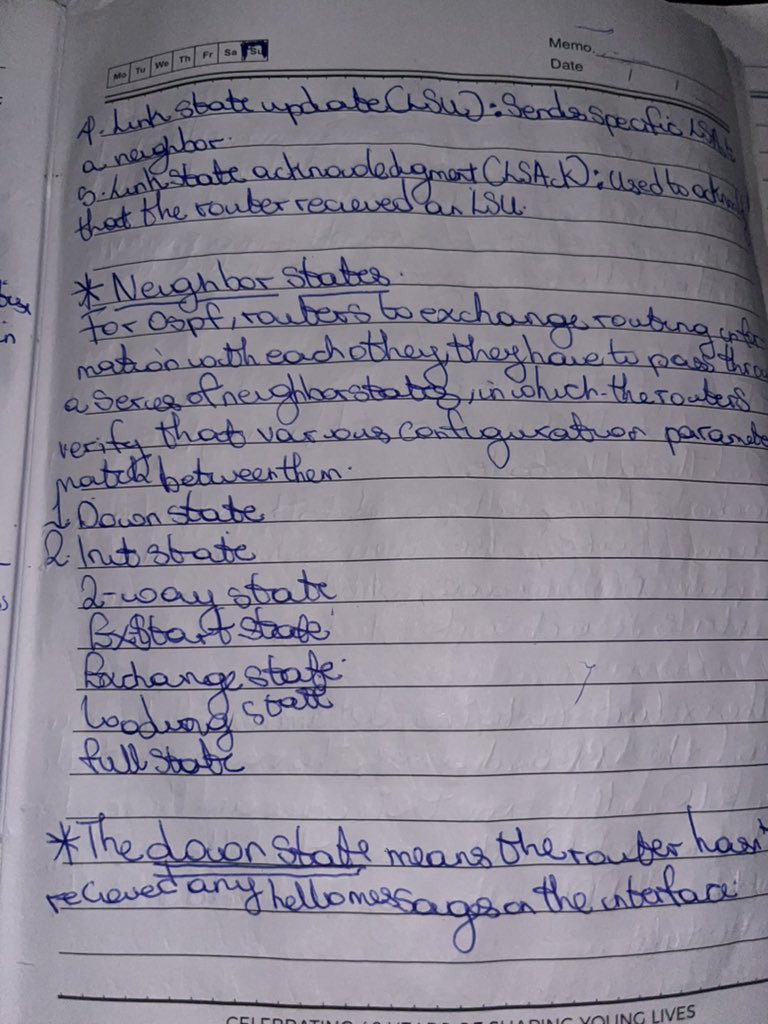 Mo Tu We Th Fr Sa Su
Memo.
Date / /
4. Link state update (LSU): Sends specific LSAs
a neighbor.
5. Link state acknowledgment (LSAck): Used to
that the router recieved an LSU.
* Neighbor states.
For Ospf, routers to exchange routing infor
mation with each other, they have to pass thro
a series of neighbor states, in which the routers
verify that various configuration paramete
match between them.
1. Down state
2. Init state
2-way state
ExStart state
Exchange state
Loading state
full state
* The down state means the router hasn't
recieved any hello messages on the interface.
YOUNG LIVES